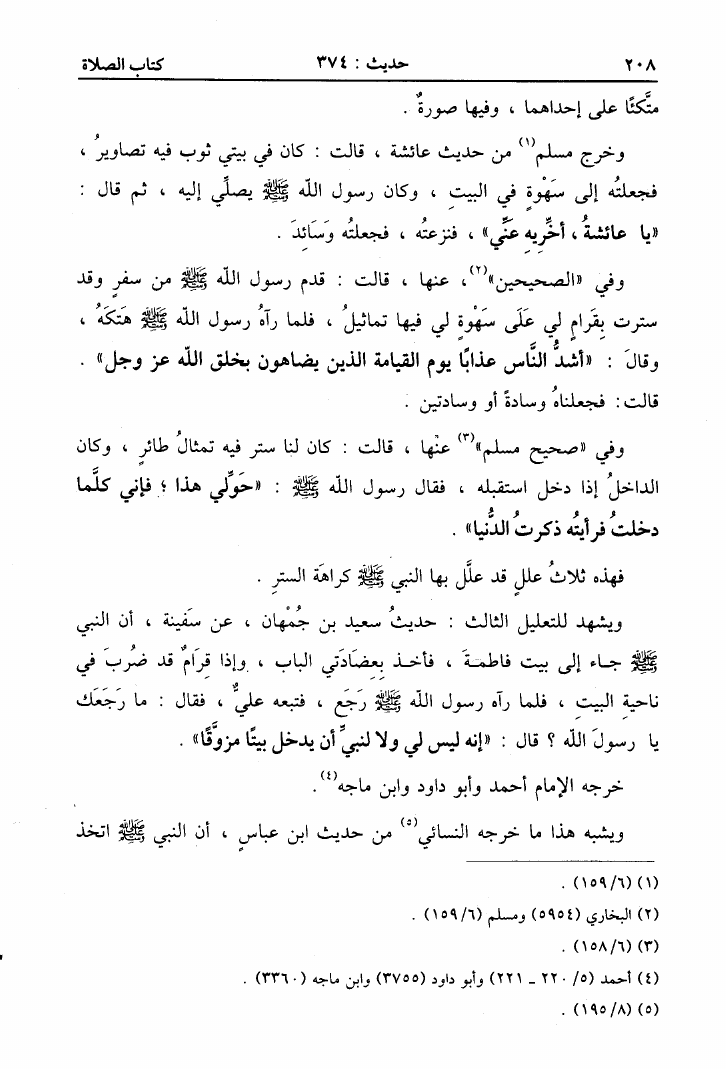 ٢٠٨ حديث : ٣٧٤ كتاب الصلاة
متَّكئًا على إحداهما ، وفيها صورةٌ .
وخرج مسلم(١) من حديث عائشة ، قالت : كان في بيتي ثوب فيه تصاويرُ ،
فجعلتُه إلى سَهْوةٍ في البيتِ ، وكان رسول الله ﷺ يصلِّي إليه ، ثم قال :
«يا عائشةُ ، أخِّرِيه عَنِّي» ، فنزعتُه ، فجعلتُه وَسَائِدَ .
وفي «الصحيحين»(٢)، عنها ، قالت : قدم رسول الله ﷺ من سفرٍ وقد
سترت بِقَرامٍ لي عَلَى سَهْوةٍ لي فيها تماثيلُ ، فلما رآهُ رسول الله ﷺ هَتكَهُ ،
وقالَ : «أشدُّ النَّاس عذابًا يوم القيامة الذين يضاهون بخلق الله عز وجل» .
قالت: فجعلناهُ وسادةً أو وسادتين .
وفي «صحيح مسلم»(٣) عنْها ، قالت : كان لنا ستر فيه تمثالُ طائرٍ ، وكان
الداخلُ إذا دخل استقبله ، فقال رسول الله ﷺ : «حَوِّلي هذا ؛ فإني كلَّما
دخلتُ فرأيتُه ذكرتُ الدُّنيا» .
فهذه ثلاثُ عللٍ قد علَّل بها النبي ﷺ كراهَة السترِ .
ويشهد للتعليل الثالث : حديثُ سعيد بن جُمْهان ، عن سَفينة ، أن النبي
ﷺ جاء إلى بيت فاطمةَ ، فأخذ بِعضَادَتي الباب ، وإذا قِرَامٌ قد ضُربَ في
ناحيةِ البيتِ ، فلما رآه رسول الله ﷺ رَجَع ، فتبعه عليٌّ ، فقال : ما رَجَعَك
يا رسولَ الله ؟ قال : «إنه ليس لي ولا لنبيٍّ أن يدخل بيتًا مزوَّقًا» .
خرجه الإمام أحمد وأبو داود وابن ماجه(٤).
ويشبه هذا ما خرجه النسائي(٥) من حديث ابن عباسٍ ، أن النبي ﷺ اتخذ
(١) (٦/١٥٩) .
(٢) البخاري (٥٩٥٤) ومسلم (٦/١٥٩) .
(٣) (٦/١٥٨) .
(٤) أحمد (٥/٢٢٠ ـ ٢٢١) وأبو داود (٣٧٥٥) وابن ماجه (٣٣٦٠) .
(٥) (٨/١٩٥) .